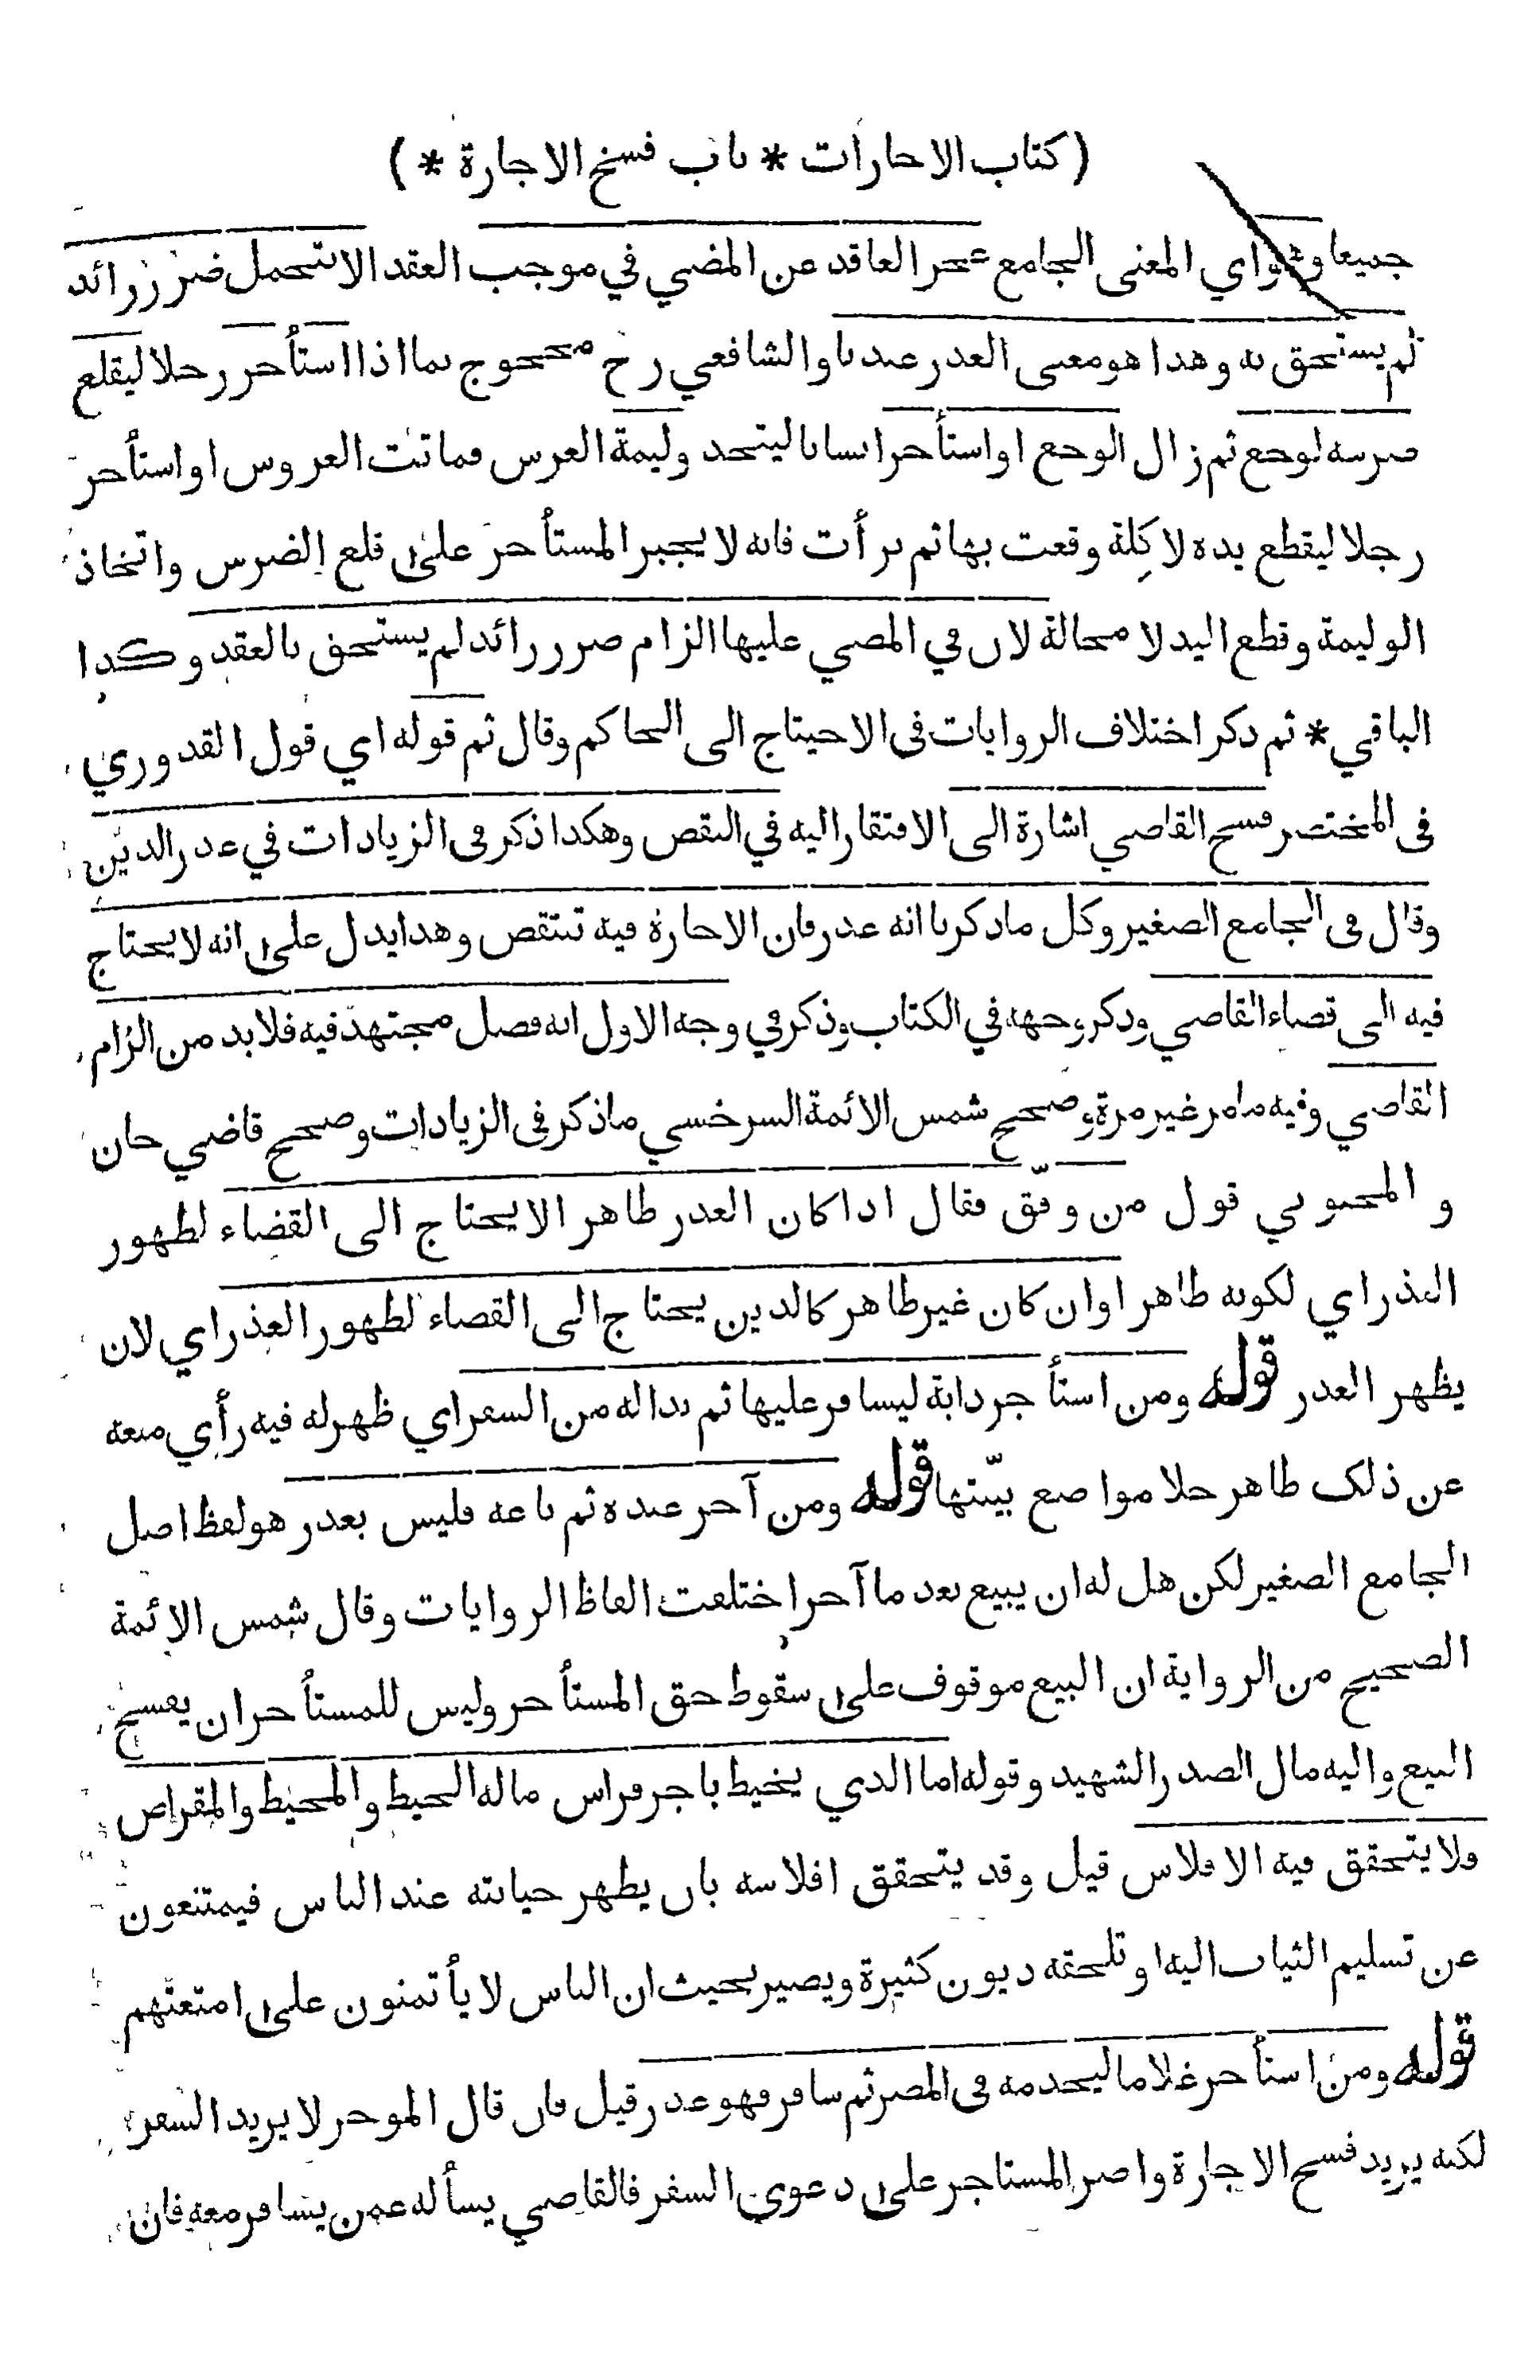 ( كتاب الاجارات * باب فسخ الاجارة * )
جميعا وهو اي المعنى الجامع عجز العاقد عن المضي في موجب العقد الا بتحمل ضرر زائد
لم يستحق به وهذا هو معنى العذر عندنا والشافعي رح محجوج بما اذا استأجر رجلا ليقلع
ضرسه لوجع ثم زال الوجع او استأجر انسانا ليتخذ وليمة العرس فماتت العروس او استأجر
رجلا ليقطع يده لاكلة وقعت بها ثم برأت فانه لا يجبر المستأجر على قلع الضرس واتخاذ
الوليمة وقطع اليد لا محالة لان في المضي عليها الزام ضرر زائد لم يستحق بالعقد وكذا
الباقي * ثم ذكر اختلاف الروايات في الاحتياج الى الحاكم وقال ثم قوله اي قول القدوري
في المختصر فسخ القاضي اشارة الى الافتقار اليه في النقض وهكذا ذكر في الزيادات في عذر الدين
وقال في الجامع الصغير وكل ما ذكرنا انه عذر فان الاجارة فيه تنتقض وهذا يدل على انه لا يحتاج
فيه الى قضاء القاضي وذكر وجهه في الكتاب وذكر في وجه الاول انه فصل مجتهد فيه فلا بد من الزام
القاضي وفيه ما مر غير مرة وصحح شمس الائمة السرخسي ما ذكر في الزيادات وصحح قاضي خان
و المحبوبي قول من وفّق فقال اذا كان العذر ظاهرا لا يحتاج الى القضاء لظهور
العذر اي لكونه ظاهرا وان كان غير ظاهر كالدين يحتاج الى القضاء لظهور العذر اي لان
يظهر العذر قوله ومن استأجر دابة ليسافر عليها ثم بدا له من السفر اي ظهر له فيه رأي منعه
عن ذلك ظاهر خلا مواضع بيّنتها قوله ومن آجر عبده ثم باعه فليس بعذر هو لفظ اصل
الجامع الصغير لكن هل له ان يبيع بعد ما آجر اختلفت الفاظ الروايات وقال شمس الائمة
الصحيح من الرواية ان البيع موقوف على سقوط حق المستأجر وليس للمستأجر ان يفسخ
البيع واليه مال الصدر الشهيد وقوله اما الذي يخيط باجر فراس ماله الخيط والمخيط والمقراض
ولا يتحقق فيه الافلاس قيل وقد يتحقق افلاسه بان يظهر خيانته عند الناس فيمتنعون
عن تسليم الثياب اليه او تلحقه ديون كثيرة ويصير بحيث ان الناس لا يأتمنون على امتعتهم
قوله ومن استأجر غلاما ليخدمه في المصر ثم سافر فهو عذر قيل فان قال الموجر لا يريد السفر
لكنه يريد فسخ الاجارة واصر المستاجر على دعوى السفر فالقاضي يسأله عمن يسافر معه فان